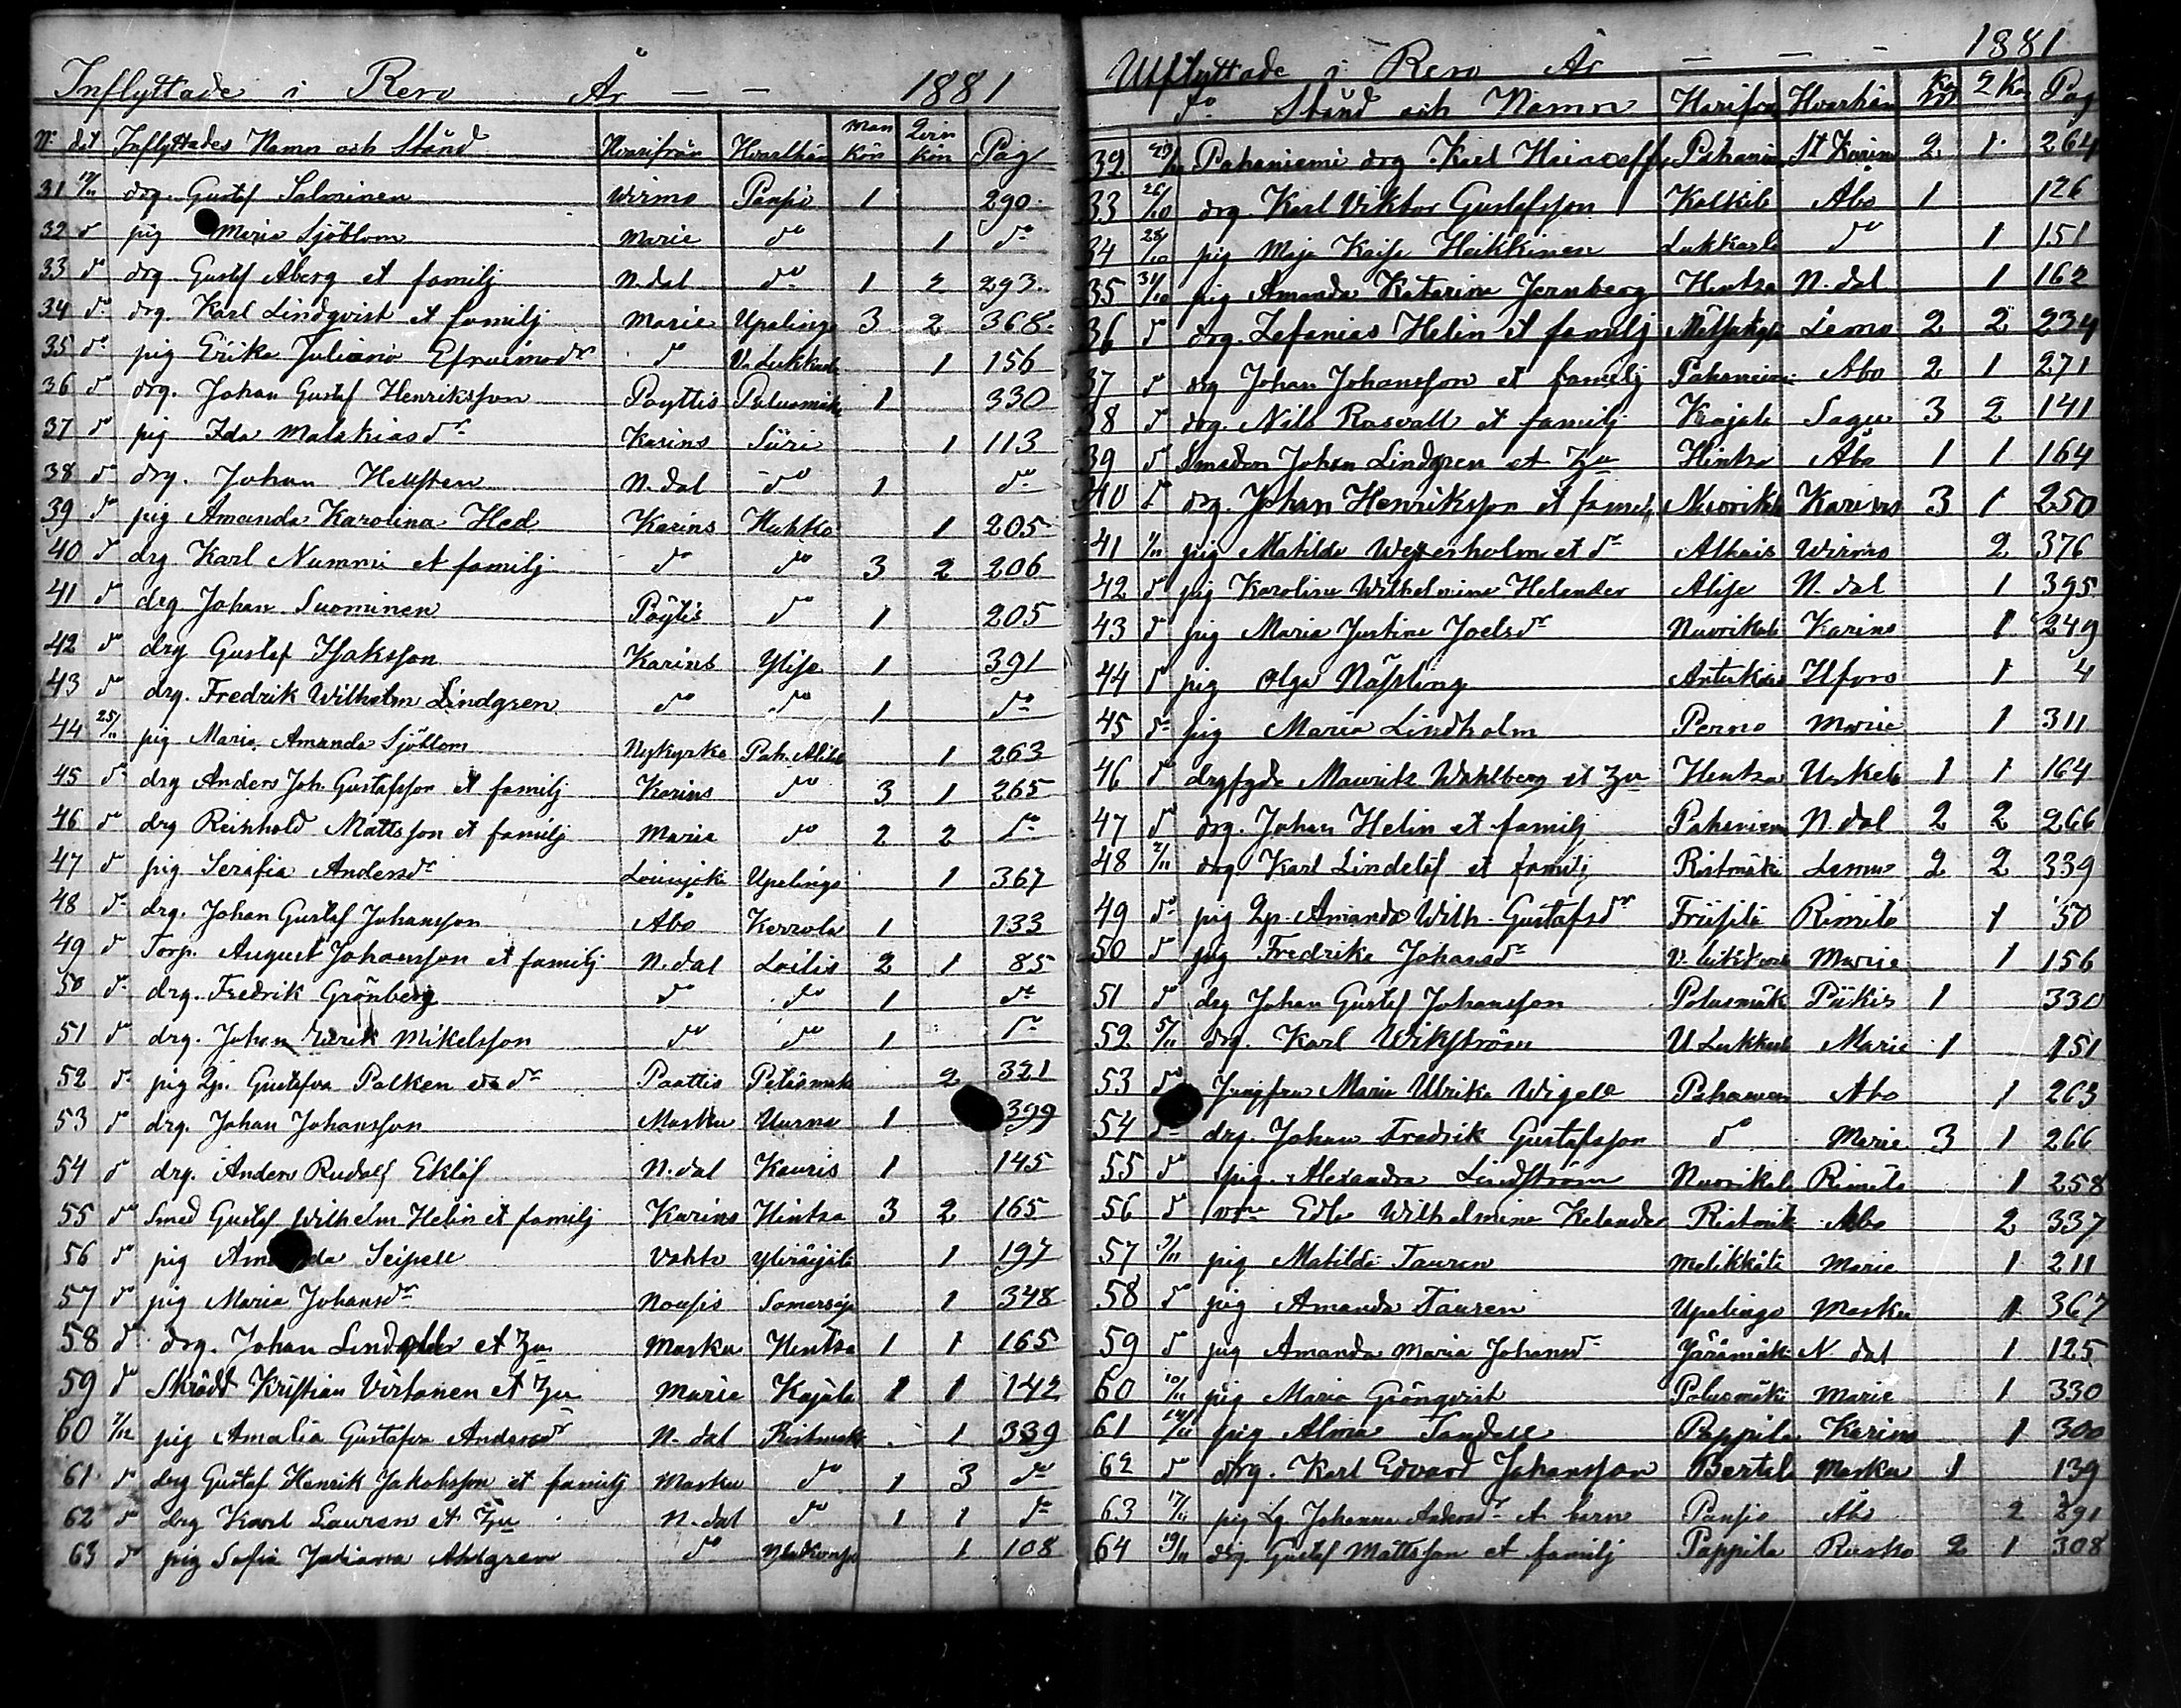 Inflyttade i Reso År — — 1881
No dat Inflyttades Namn och Stånd Hvarifrån Hvarthän Man kön Qvin kön Pag
31 19/11 drg. Gustaf Salminen Wirmo Pansio 1 290
32 do pig Maria Sjöblom Marie do 1 do
33 do drg. Gustaf Åberg et familj N.dal do 1 2 293
34 do drg. Karl Lindqvist et familj Marie Upalingo 3 2 368
35 do pig Erika Juliana Efraimsdr do U. Lukkarla 1 156
36 do drg. Johan Gustaf Henriksson Pöyttis Palusmäki 1 330
37 do pig Ida Malakiasdr Karins Siiri 1 113
38 do drg. Johan Hellsten N.dal do 1 do
39 do pig Amanda Karolina Hed Karins Huhko 1 205
40 do drg Karl Nummi et familj do do 3 2 206
41 do drg Johan Suominen Pöytis do 1 205
42 do drg Gustaf Isaksson Karins Ylise 1 391
43 do drg. Fredrik Wilhelm Lindgren do do 1 do
44 25/11 pig Maria Amanda Sjöblom Nykyrka Pah. 1 263
45 do drg Anders Joh. Gustafsson et familj Karins do 3 1 265
46 do drg Reinhold Mattsson et familj Marie do 2 2 do
47 do pig Serafia Andersdr Loimijoki Upalingo 1 367
48 do drg. Johan Gustaf Johansson Åbo Kerrola 1 133
49 do Torp. August Johansson et familj N.dal Laitis 2 1 85
50 do drg. Fredrik Grönberg do do 1 do
51 do drg. Johan Eerik Mikelsson do do 1 do
52 do pig Qp. Gustafva Palken et dr Paattis Petäsmäki 2 321
53 do drg. Johan Johansson Masku Uurna 1 399
54 do drg. Anders Rudolf Eklöf N.dal Kauris 1 145
55 do Smed Gustaf Wilhelm Helin et familj Karins Hintsa 3 2 165
56 do pig Amanda Seipell Vahto Yliräijälä 1 197
57 do pig Maria Johansdr Nousis Somersoja 1 348
58 do drg. Johan et hu Masku Hintsa 1 1 165
59 do Skrädd Kristian Virtanen et hu Marie Kajala 1 1 142
60 2/12 pig Amalia Gustafva Andersdr N.dal Ristmäki 1 339
61 do drg Gustaf Henrik Jakobsson et familj Masku do 1 3 do
62 do drg Karl Lauren et hu N.dal do 1 1 do
63 do pig Sofia Juliana Ahlgren do 1 108
Utflyttade i Reso År — — — 1881
do Stånd och Namn Harifrån Hvarthän 2 Kön Pag
32 Pahaniemi drg. Karl Pahaniemi St Karin 2 1 264
33 26/10 drg. Karl Viktor Gustafsson Kalkila Åbo 1 126
34 28/10 pig Maja Kaisa Heikkinen Lukkarla do 1 151
35 31/10 pig Amanda Katarina Jernberg Hintsa N.dal 1 162
36 do drg. Zefanias Helin et familj Lemo 2 2 234
37 do drg Johan Johansson et familj Pahaniemi Åbo 2 1 271
38 do drg. Nils Rosvall et familj Kajala Sagu 3 2 141
39 do Smeden Johan Lindgren et hu Hintsa Åbo 1 1 164
40 do drg. Johan Henriksson et familj Nuorikala Karins 3 1 250
41 1/11 pig Matilda Westerholm et dr Alhais Wirmo 2 376
42 do pig Karolina Wilhelmina Helander Alise N.dal 1 395
43 do pig Maria Justina Joelsdr Nuorikala Karins 1 249
44 do pig Olga Näsling Hfors 1 4
45 do pig Maria Lindholm Perno Marie 1 311
46 do Maurits Wahlberg et hu Hintsa Uskela 1 1 164
47 do drg. Johan Helin et familj Pahaniemi N.dal 2 2 266
48 2/11 drg Karl Lindelöf et familj Ristmäki Lemo 2 2 339
49 do pig Qp. Amanda Wilh. Gustafsdr Friisilä Rimito 1 50
50 do pig Fredrika Johansdr U. Lukkarla Marie 1 156
51 do drg Johan Gustaf Johansson Polusmäki Piikis 1 330
52 5/11 drg. Karl Wikström U Lukkarla Marie 1 151
53 do Jungfru Maria Ulrika Wigell Pahaniemi Åbo 1 263
54 do drg. Johan Fredrik Gustafsson do Marie 3 1 266
55 do pig. Alexandra Lindström Nuorikala Rimito 1 258
56 do Edla Wilhelmina Kelander Ristmäki Åbo 2 337
57 9/11 pig Matilda Tauren Metikkälä Marie 1 211
58 do pig Amanda Tauren Upalingo Masku 1 367
59 do pig Amanda Maria Johansdr Järämäki N.dal 1 125
60 10/11 pig Maria Grönqvist Palusmäki Marie 1 330
61 14/11 pig Alma Sandell Pappila Karins 1 300
62 do drg. Karl Edvard Johansson Bertila Masku 1 139
63 17/11 pig Lg. Johanna Andersdr et barn Pansio Åbo 2 291
64 19/11 drg. Gustaf Mattsson et familj Pappila Rusko 2 1 308